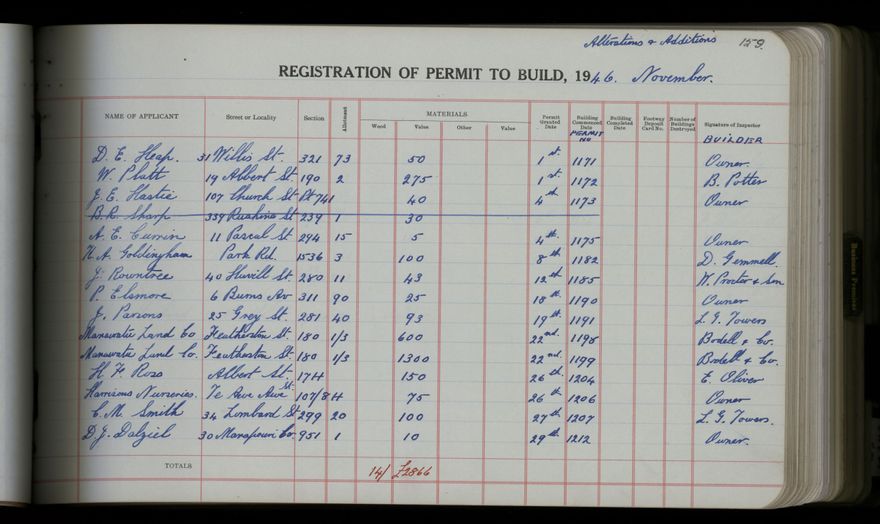 Alterations & Additions 159.
REGISTRATION OF PERMIT TO BUILD, 1946. November.
NAME OF APPLICANT Street or Locality Section Allotment MATERIALS Permit Granted Date Building Commenced Date Building Completed Date Footway Deposit Card No. Number of Buildings Destroyed Signature of Inspector
Wood Value Other Value PERMIT NO BUILDER
D. E. Heap. 31 Willis St. 321 73 50 1st. 1171 Owner.
W. Platt 19 Albert St. 190 2 275 1st. 1172 B. Potter
J. E. Hastie 107 Church St Pt 741 40 4th 1173 Owner
B. R. Sharp 339 Ruahine St 239 1 30
A. E. Currin 11 Pascal St 294 15 5 4th. 1175 Owner
H. A. Goldingham Park Rd. 1536 3 100 8th 1182 D. Gemmell.
J. Rowntree 40 St 280 11 43 12th 1185 W. Procter & Son
P. Elsmore 6 Burns Av 311 90 25 18th. 1190 Owner
J. Parsons 25 Grey St. 281 40 93 19th. 1191 L. G. Towers
Manawatu Land Co Featherston St. 180 1/3 600 22nd. 1198 Bodell & Co.
Manawatu Land Co. Featherston St. 180 1/3 1300 22nd. 1199 Bodell & Co.
H. F. Ross Albert St. 174 150 26th. 1204 E. Oliver
Harrisons Nurseries. Te Awe Awe St. 107/84 75 26th 1206 Owner
C. M. Smith 34 Lombard St 299 20 100 27th 1207 L. G. Towers.
D. J. Dalziel 30 Manapouri Cr. 951 1 10 29th 1212 Owner.
TOTALS 14/ £2866
Business Premises